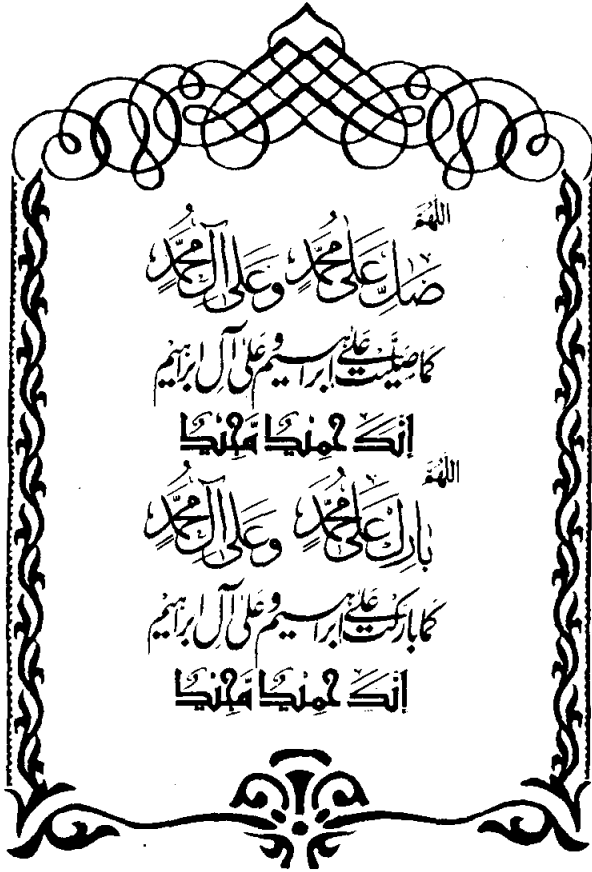 اللهُمَّ
صَلِّ عَلَى مُحَمَّدٍ وَعَلَى آلِ مُحَمَّدٍ
كَمَا صَلَّيْتَ عَلَى إبراهيم وعَلى آلِ ابراهيم
إنَّكَ حَمِيْدٌ مَّجِيْدٌ
اللهُمَّ
بَارِكْ عَلَى مُحَمَّدٍ وَعَلَى آلِ مُحَمَّدٍ
كَمَا بَارَكْتَ عَلَى إبراهيم وعَلى آلِ ابراهيم
إنَّكَ حَمِيْدٌ مَّجِيْدٌ